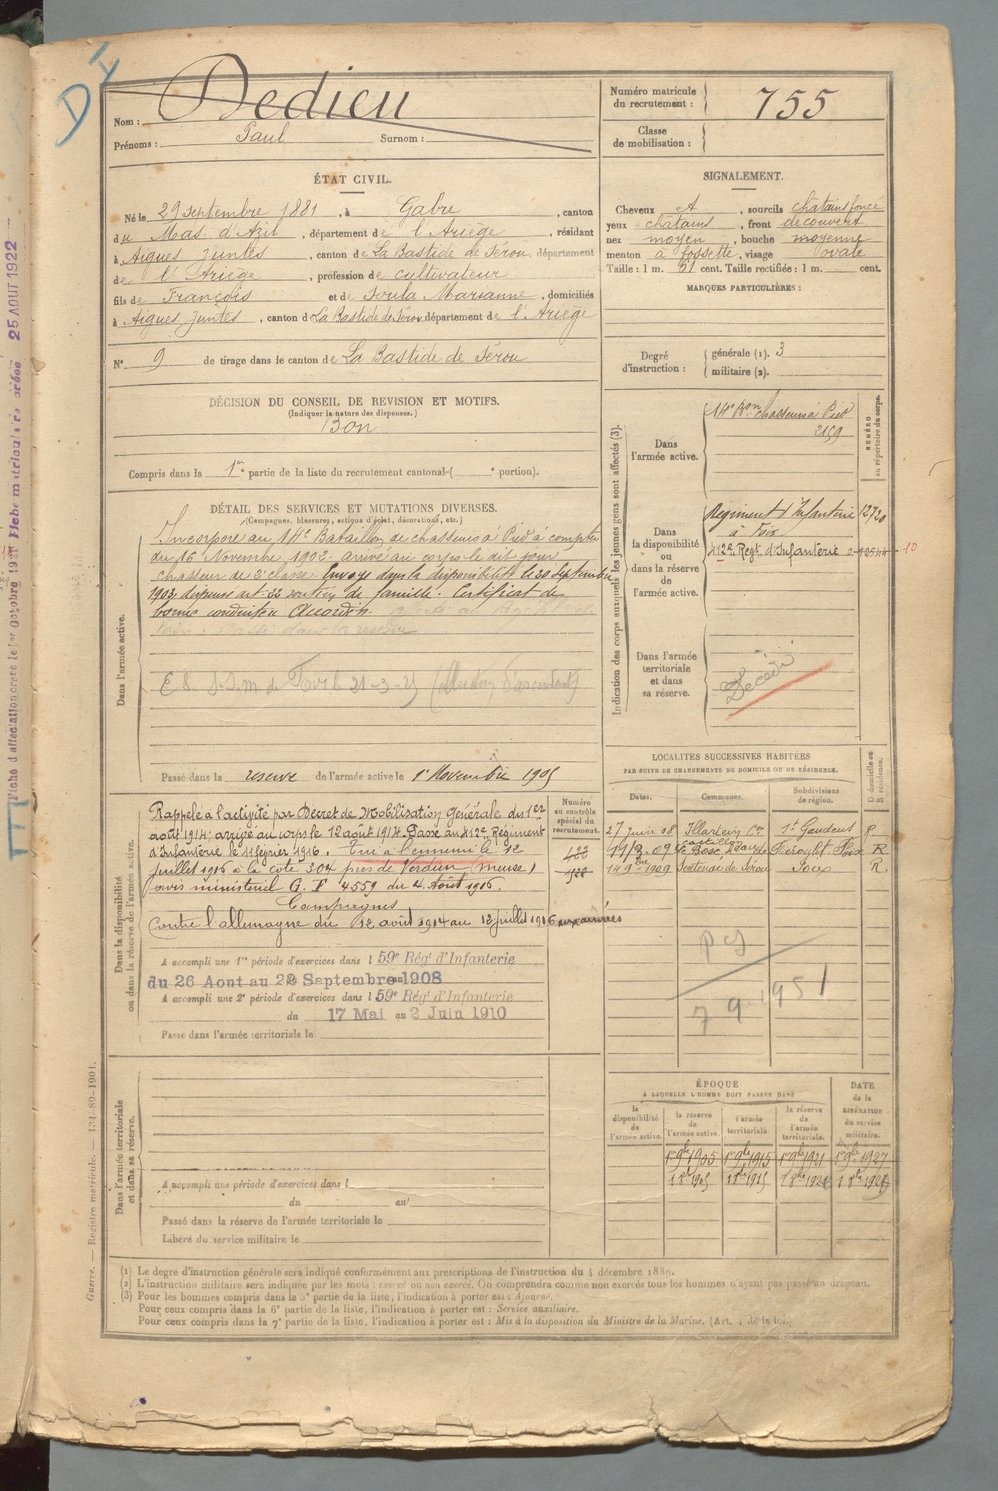 DI
Nom : Dedieu
Prénoms : Paul Surnom :
Numéro matricule du recrutement : 755
Classe de mobilisation :
ÉTAT CIVIL.
Né le 29 septembre 1881, à Gabre, canton
du Mas d'Azil, département de l'Ariège, résidant
à Aigues juntes, canton de La Bastide de Sérou, département
de l'Ariège, profession de cultivateur
fils de François et de Soula Marianne, domiciliés
à Aigues juntes, canton de La Bastide de Sérou département de l'Ariège
N° 9 de tirage dans le canton de La Bastide de Sérou
SIGNALEMENT.
Cheveux et, sourcils châtains foncé
yeux châtains, front découvert
nez moyen, bouche moyenne
menton à fossette, visage ovale
Taille : 1 m. 51 cent. Taille rectifiée : 1 m. cent.
MARQUES PARTICULIÈRES :
Degré d'instruction :
générale (1). 3
militaire (2).
DÉCISION DU CONSEIL DE REVISION ET MOTIFS.
(Indiquer la nature des dispenses.)
Bon
Compris dans la 1re partie de la liste du recrutement cantonal ( e portion).
DÉTAIL DES SERVICES ET MUTATIONS DIVERSES.
(Campagnes, blessures, actions d'éclat, décorations, etc.)
Dans l'armée active.
Incorporé au 14e Bataillon de chasseurs à Pied à compter
du 16 Novembre 1902. arrivé au corps le dit jour
chasseur de 2e classe. Envoyé dans la disponibilité le 20 Septembre
1903 dispensé art. 22 soutien de famille. Certificat de
bonne conduite Accordé.
Passé dans la réserve de l'armée active le 1er Novembre 1905
Indication des corps auxquels les jeunes gens sont affectés (3).
NUMÉRO au répertoire du corps.
Dans l'armée active.
14e Bon chasseurs à Pied
2159
Dans la disponibilité ou dans la réserve de l'armée active.
Régiment d'Infanterie à Foix
412e Régt d'Infanterie
10
Dans l'armée territoriale et dans sa réserve.
Décédé
Dans la disponibilité ou dans la réserve de l'armée active.
Numéro au contrôle spécial du recrutement.
Rappelé à l'activité par Décret de Mobilisation Générale du 1er
août 1914. arrivé au corps le 12 août 1914. Passé au 412e Régiment
d'Infanterie le 11 février 1916. Tué à l'ennemi le 12
juillet 1916 à la côte 304 près de Verdun (Meuse)
avis ministériel G. F 4559 du 4 Août 1916.
Campagnes
Contre l'allemagne du 12 août 1914 au 12 juillet 1916 aux armées
A accompli une 1re période d'exercices dans l 59e Régt d'Infanterie
du 26 Aout au 22 Septembre 1908
A accompli une 2e période d'exercices dans l 59e Régt d'Infanterie
du 17 Mai au 2 Juin 1910
Passé dans l'armée territoriale le
LOCALITÉS SUCCESSIVES HABITÉES
PAR SUITE DE CHANGEMENTS DE DOMICILE OU DE RÉSIDENCE.
Dates. Communes. Subdivisions de région. D domicile ou R résidence.
27 juin 08 Illartein St Gaudens
11/3.09 Le Bosc Foix R
14 9bre 1909 Sentenac de Sérou Foix R.
7 9 1951
ÉPOQUE
À LAQUELLE L'HOMME DOIT PASSER DANS
la disponibilité de l'armée active.
la réserve de l'armée active.
l'armée territoriale.
la réserve de l'armée territoriale.
DATE de la LIBÉRATION du service militaire.
1er 9bre 1905 1er 9bre 1915 1er 9bre 1921 1er 9bre 1927
Dans l'armée territoriale et dans sa réserve.
A accompli une période d'exercices dans l
du au
Passé dans la réserve de l'armée territoriale le
Libéré du service militaire le
(1) Le degré d'instruction générale sera indiqué conformément aux prescriptions de l'instruction du 4 décembre 1889.
(2) L'instruction militaire sera indiquée par les mots : exercé ou non exercé. On comprendra comme non exercés tous les hommes n'ayant pas passé au drapeau.
(3) Pour les hommes compris dans la 5e partie de la liste, l'indication à porter est : Ajourné.
Pour ceux compris dans la 6e partie de la liste, l'indication à porter est : Service auxiliaire.
Pour ceux compris dans la 7e partie de la liste, l'indication à porter est : Mis à la disposition du Ministre de la Marine. (Art. 4 de la loi.)
Guerre. — Registre matricule. — 131-89-1901.
25 AOUT 1922